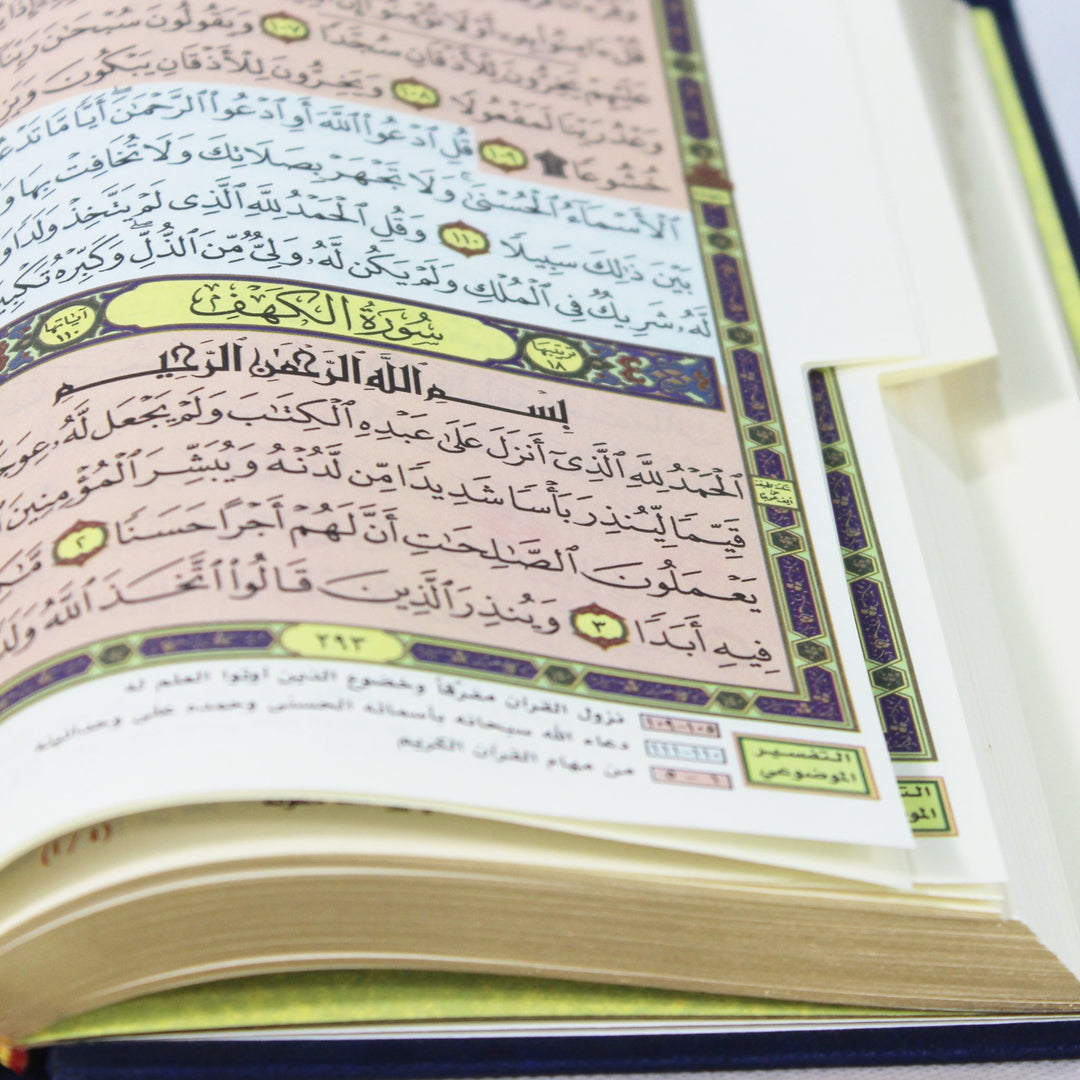 قُلْ ءَامِنُوا۟ بِهِۦٓ أَوْ لَا تُؤْمِنُوٓا۟
عَلَيْهِمْ يَخِرُّونَ لِلْأَذْقَانِ سُجَّدًا ١٠٧ وَيَقُولُونَ سُبْحَـٰنَ رَبِّنَآ
وَعْدُ رَبِّنَا لَمَفْعُولًا ١٠٨ وَيَخِرُّونَ لِلْأَذْقَانِ يَبْكُونَ
خُشُوعًا ۩ ١٠٩ قُلِ ٱدْعُوا۟ ٱللَّهَ أَوِ ٱدْعُوا۟ ٱلرَّحْمَـٰنَ ۖ أَيًّا مَّا
ٱلْأَسْمَآءُ ٱلْحُسْنَىٰ ۚ وَلَا تَجْهَرْ بِصَلَاتِكَ وَلَا تُخَافِتْ بِهَا
بَيْنَ ذَٰلِكَ سَبِيلًا ١١٠ وَقُلِ ٱلْحَمْدُ لِلَّهِ ٱلَّذِى لَمْ يَتَّخِذْ وَلَدًا
لَّهُۥ شَرِيكٌ فِى ٱلْمُلْكِ وَلَمْ يَكُن لَّهُۥ وَلِىٌّ مِّنَ ٱلذُّلِّ ۖ وَكَبِّرْهُ
ترتيبها ١٨ سُورَةُ الكَهْفِ آياتها ١١٠
بِسْمِ ٱللَّهِ ٱلرَّحْمَـٰنِ ٱلرَّحِيمِ
ٱلْحَمْدُ لِلَّهِ ٱلَّذِىٓ أَنزَلَ عَلَىٰ عَبْدِهِ ٱلْكِتَـٰبَ وَلَمْ يَجْعَل لَّهُۥ
قَيِّمًا لِّيُنذِرَ بَأْسًا شَدِيدًا مِّن لَّدُنْهُ وَيُبَشِّرَ ٱلْمُؤْمِنِينَ
يَعْمَلُونَ ٱلصَّـٰلِحَـٰتِ أَنَّ لَهُمْ أَجْرًا حَسَنًا ٢
فِيهِ أَبَدًا ٣ وَيُنذِرَ ٱلَّذِينَ قَالُوا۟ ٱتَّخَذَ ٱللَّهُ
٢٩٣
التفسير الموضوعي
١٠٥-١٠٩ نزول القرآن مفرّقاً وخضوع الذين أوتوا العلم له
١١٠-١١١ دعاء الله سبحانه بأسمائه الحسنى وحمده على وحدانيته
١-٥ من مهام القرآن الكريم